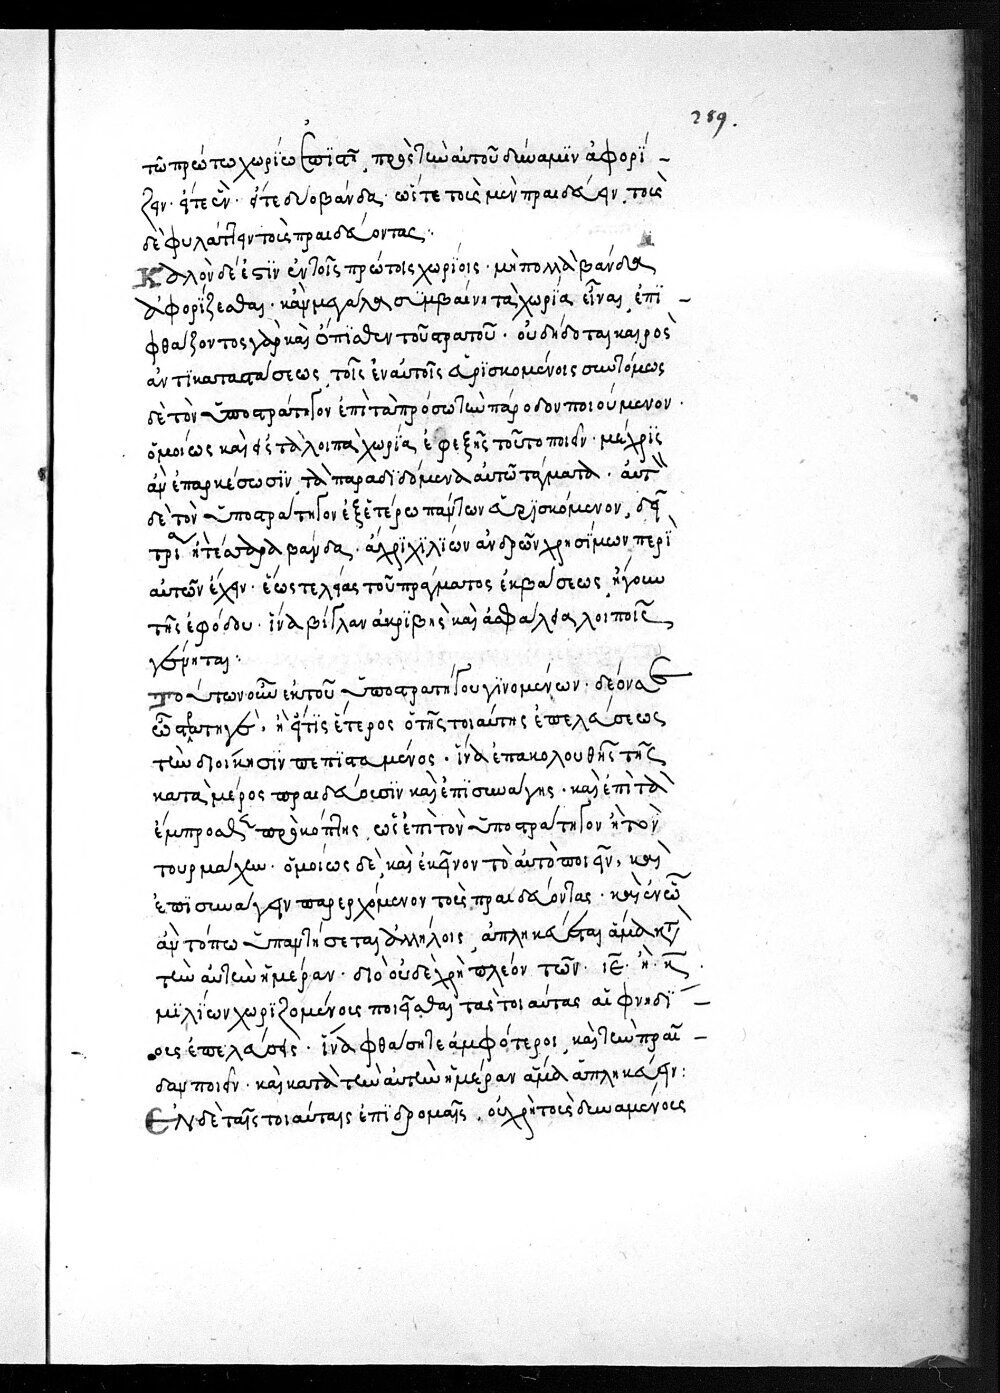 259.
τῶ πρώτω χωρίω ἐπιστῆ, πρὸς τὴν αὐτοῦ δύναμιν ἀφορί-
ζειν· εἴτε ἓν· εἴτε δύο βάνδα· ὥστε τοὺς μὲν πραιδεύειν, τοὺς
δὲ φυλάττειν τοὺς πραιδεύοντας·
Καλὸν δέ ἐστϊν ἐν τοῖς πρώτοις χωρίοις· μὴ πολλὰ βάνδα
ἀφορίζεσθαι· κἂν μεγάλα συμβαίνη τὰ χωρία εἶναι, ἐπϊ-
φθάζοντος γὰρ καὶ ὄπισθεν τοῦ στρατοῦ· οὐ δίδοται καιρὸς
ἀντϊκαταστάσεως τοῖς ἐν αὐτοῖς εὑρϊσκομένοις συντόμως
δὲ τὸν ὑποστράτηγον ἐπὶ τὰ πρόσω τὴν πάροδον ποιούμενον·
ὁμοίως καὶ εἰς τὰ λοιπὰ χωρία ἐφεξῆς τοῦτο ποιεῖν· μέχρις
ἂν ἐπαρκέσωσϊν τὰ παραδϊδόμενα αὐτῶ τάγματα· αὐτὸν
δὲ τὸν ὑποστράτηγον ἐξ ἑτέρω πάντων εὑρϊσκόμενον, δεῖ
τρία ἢ τέσσαρα βάνδα· ἄχρϊ χϊλίων ἀνδρῶν χρησίμων περὶ
αὐτῶν ἔχειν· ἕως τελείας τοῦ πράγματος ἐκβάσεως ἤγουν
τῆς ἐφόδου· ἵνα βίγλαν ἀκρϊβῆς καὶ ἀσφαλεία λοιποῖς
γένηται·
Τούτων οὖν ἐκ τοῦ ὑποστρατήγου γϊνομένων· δέον ἐστὶ
τῶ στρατηγῶ, ἢ εἴ τϊς ἕτερος ὁ τῆς τοιαύτης ἐπελάσεως
τὴν διοίκησϊν πεπϊστευμένος· ἵνα ἐπακολουθῆ τῆς
κατὰ μέρος πραιδεύουσϊν καὶ ἐπϊσυνάγης· καὶ ἐπὶ τὰ
ἔμπροσθεν προκόπτης ὡς ἐπὶ τὸν ὑποστράτηγον ἢ τὸν
τουρμάρχην· ὁμοίως δὲ καὶ ἐκεῖνον τὸ αὐτὸ ποιεῖν, καὶ
ἐπϊσυνάγειν παρερχόμενον τοὺς πραιδεύοντας· καὶ ἐν ᾧ
ἂν τόπω ὑπαντήσεται ἀλλήλοις, ἀπληκεύεται ἅμα κατὰ
τὴν αὐτὴν ἡμέραν· διὸ οὐδὲ χρὴ πλέον τῶν· ιε· ἢ κ·
μϊλίων χωρϊζομένοις ποιεῖσθαι τὰς τοιαύτας αἰφνηδϊ-
οις ἐπελάσεις· ἵνα φθάσητε ἀμφότεροι, καὶ τὴν πραῖ-
δαν ποιεῖν· καὶ κατὰ τὴν αὐτὴν ἡμέραν ἅμα ἀπληκεύειν:
Ἐν δὲ ταῖς τοιαύταις ἐπϊδρομαῖς, οὐ χρὴ τοὺς δυναμένους